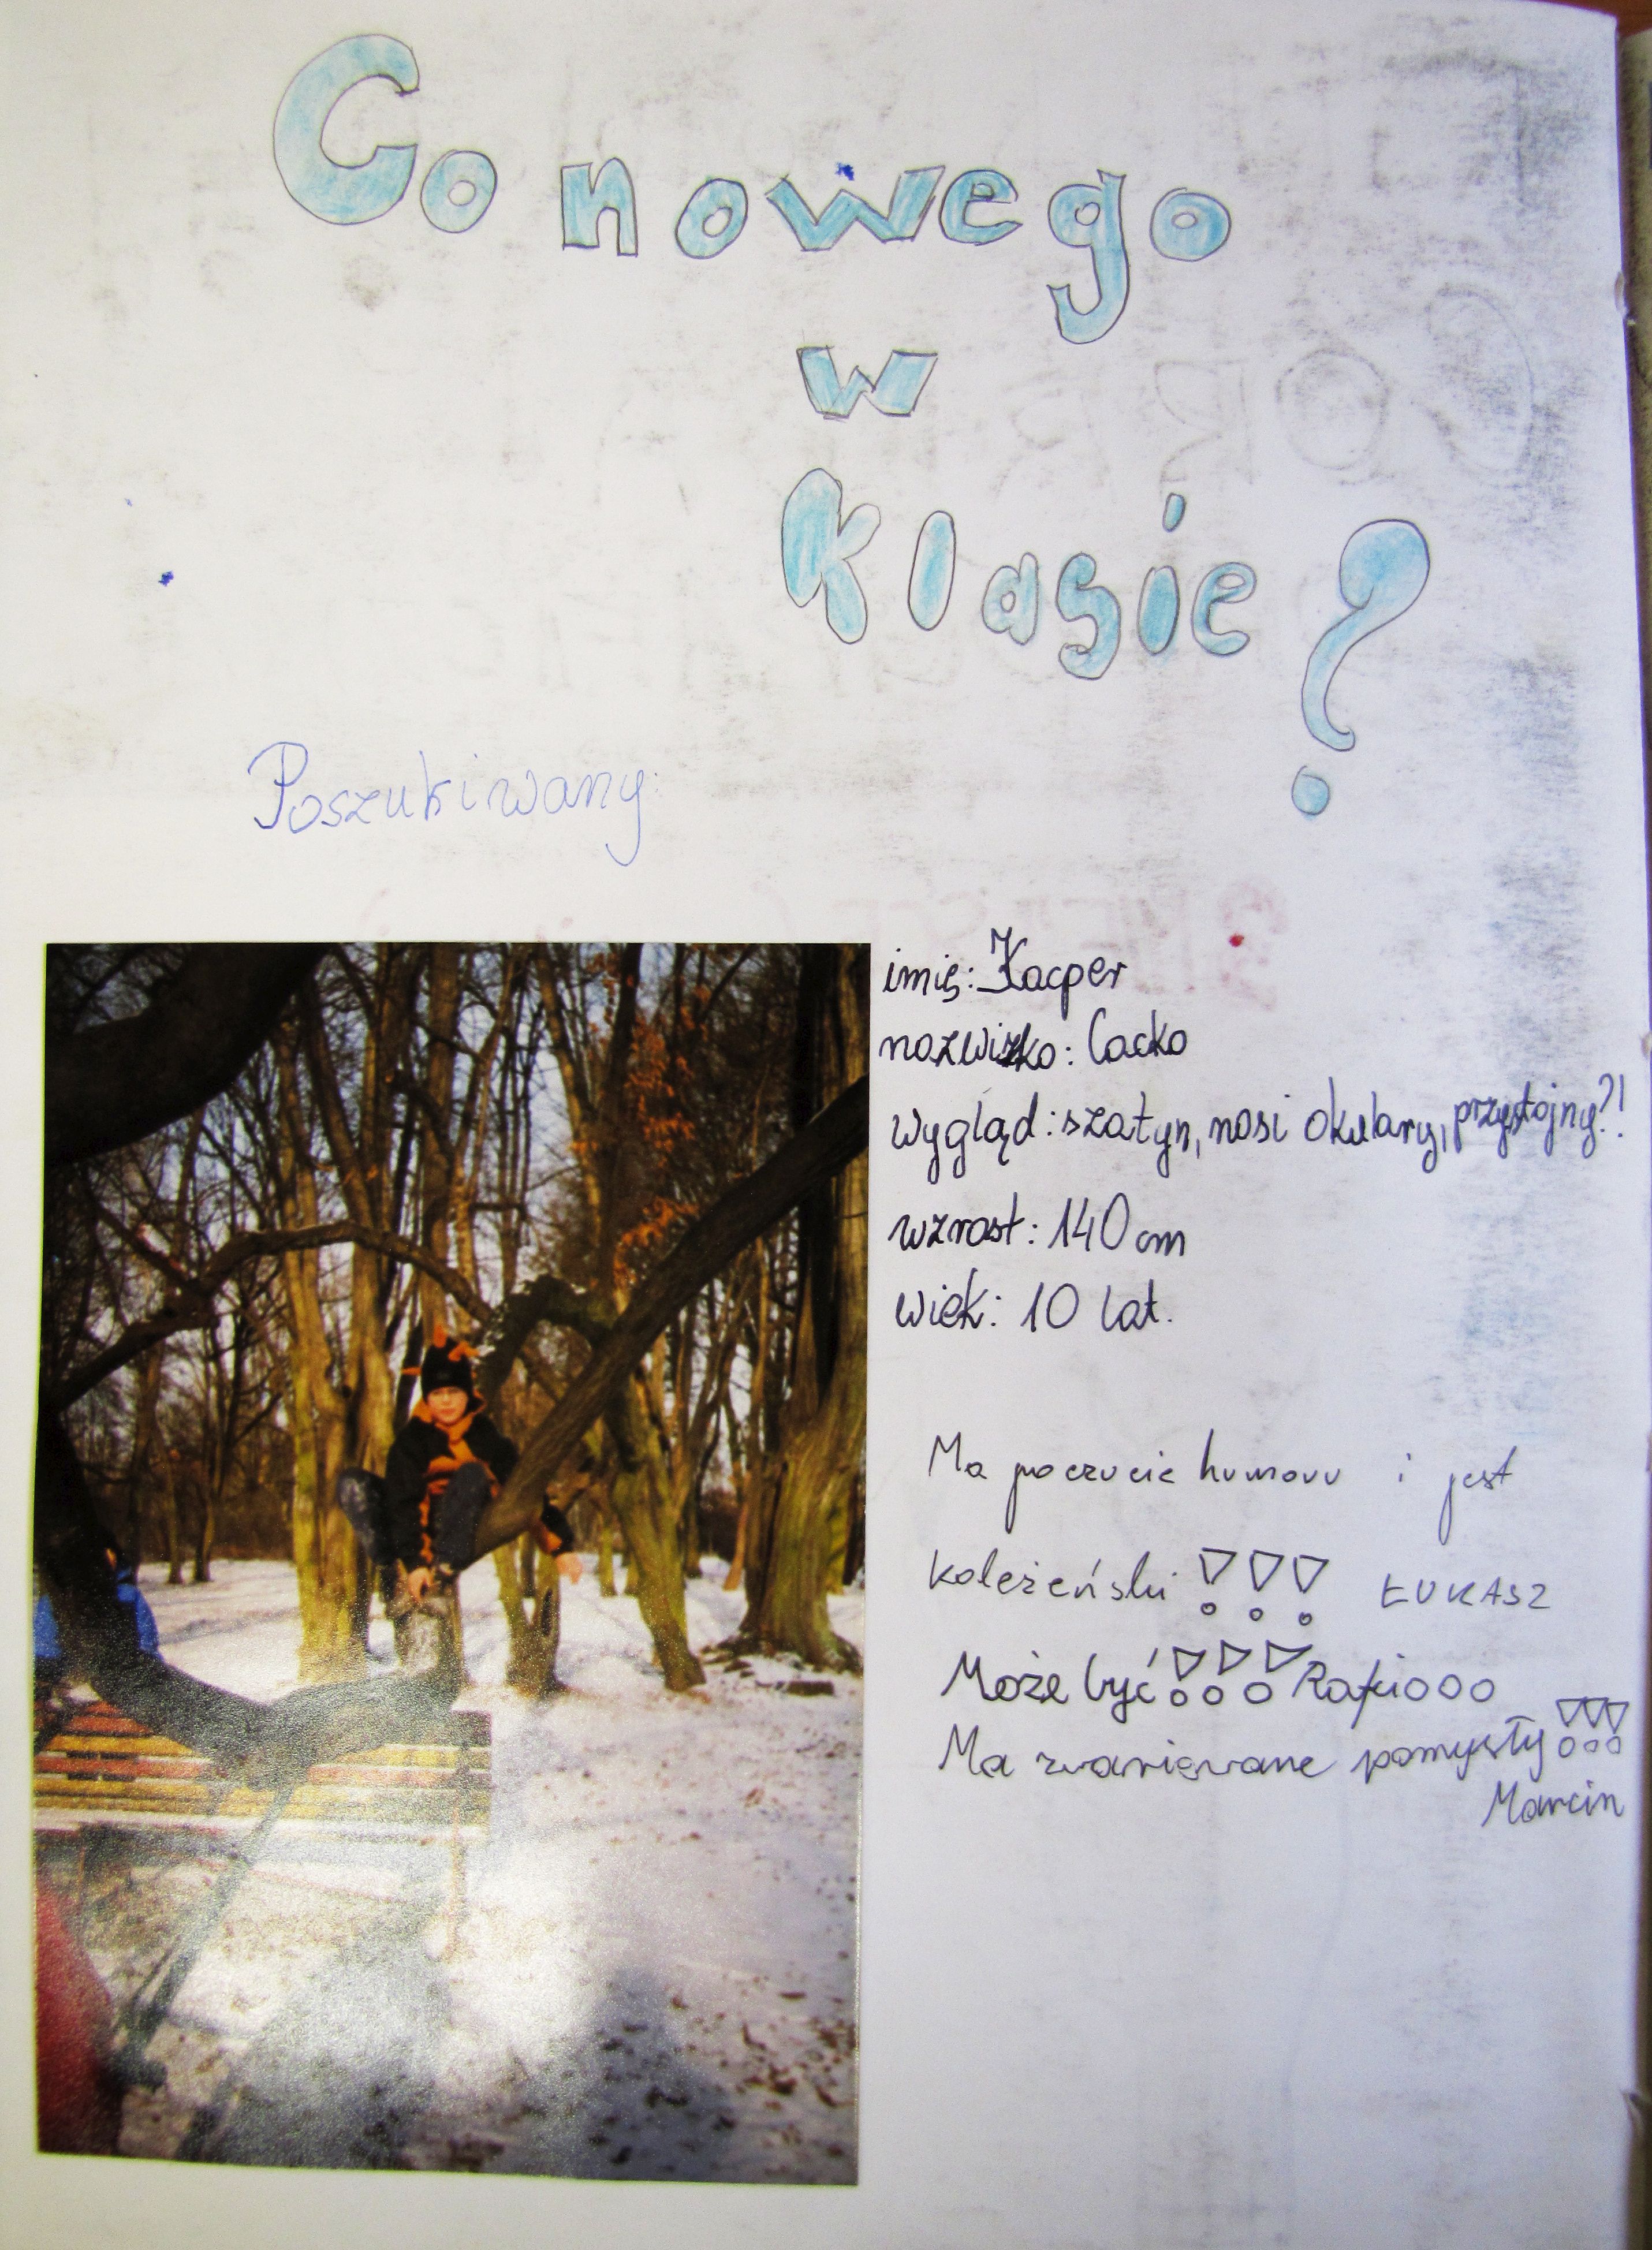 Co nowego
w
klasie?
Poszukiwany:
imię: Kacper
nazwisko: Cacko
wygląd: szatyn, nosi okulary, przystojny?!
wzrost: 140 cm
wiek: 10 lat.
Ma poczucie humoru i jest
koleżeński!!! ŁUKASZ
Może być!!! Rafiooo
Ma zwariowane pomysły!!!
Marcin